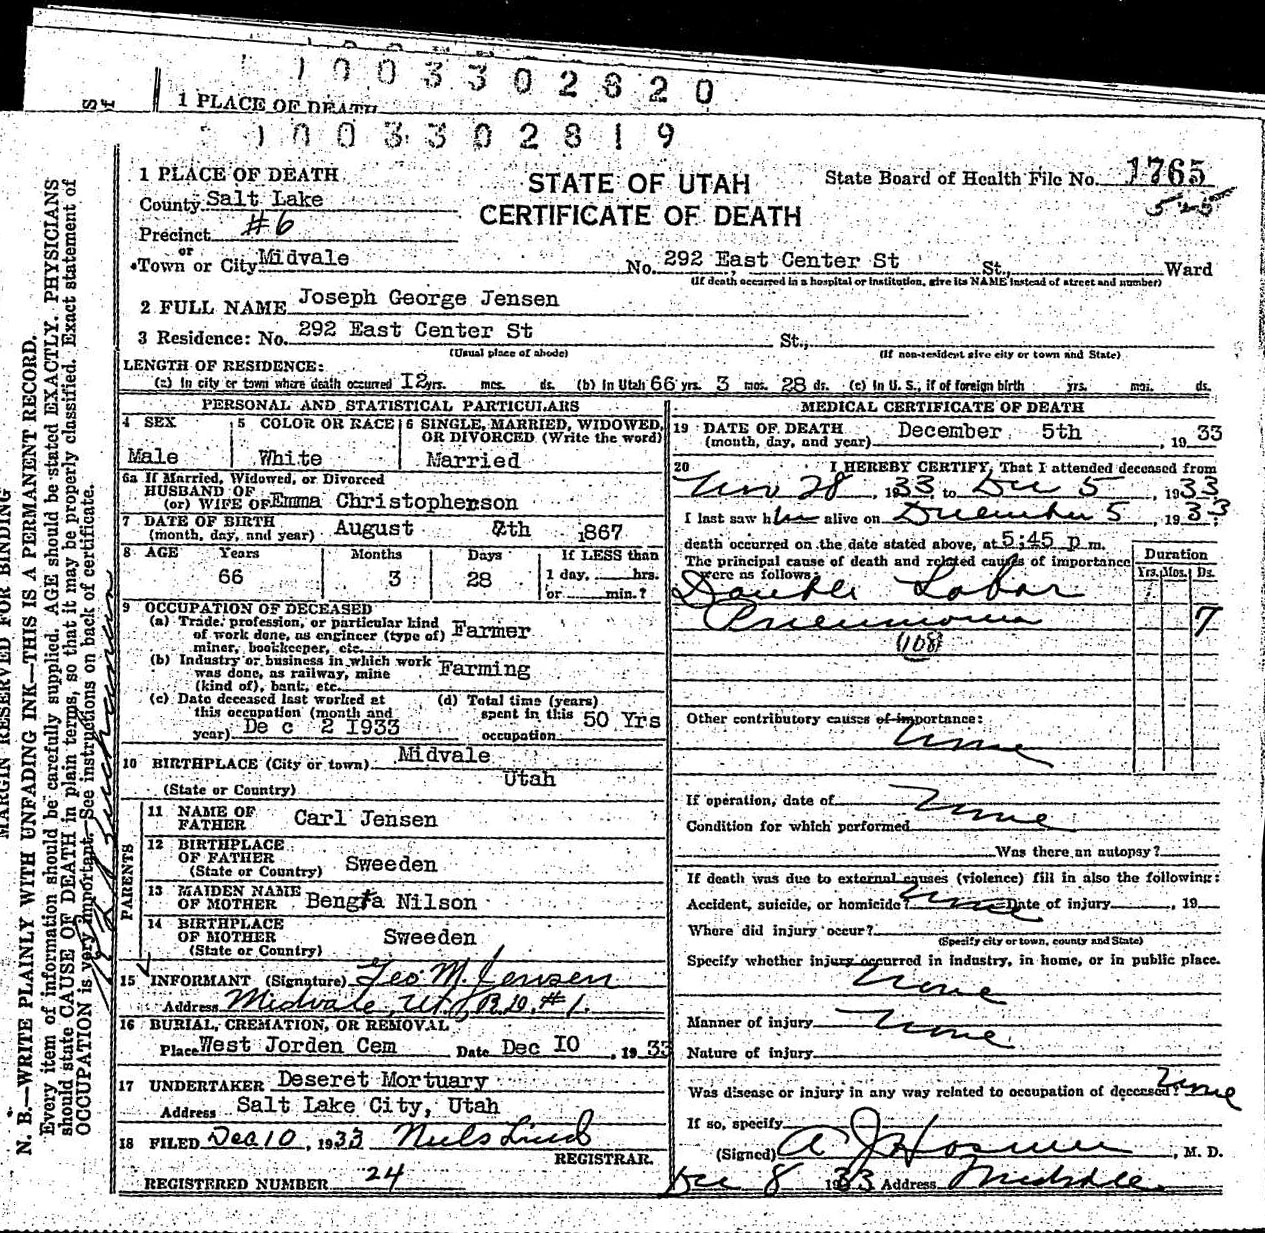 1003302820
1 PLACE OF DEATH
1003302819
1 PLACE OF DEATH
STATE OF UTAH
CERTIFICATE OF DEATH
State Board of Health File No. 1765
County Salt Lake
Precinct #6
or
Town or City Midvale No. 292 East Center St St., Ward
(If death occurred in a hospital or institution, give its NAME instead of street and number)
2 FULL NAME Joseph George Jensen
3 Residence: No. 292 East Center St St.,
(Usual place of abode) (If non-resident give city or town and State)
LENGTH OF RESIDENCE:
(a) In city or town where death occurred 12 yrs. mos. ds. (b) In Utah 66 yrs. 3 mos. 28 ds. (c) In U. S., if of foreign birth yrs. mos. ds.
PERSONAL AND STATISTICAL PARTICULARS
4 SEX Male
5 COLOR OR RACE White
6 SINGLE, MARRIED, WIDOWED,
OR DIVORCED (Write the word)
Married
6a If Married, Widowed, or Divorced
HUSBAND OF
(or) WIFE OF Emma Christophenson
7 DATE OF BIRTH
(month, day, and year) August 7th 1867
8 AGE Years Months Days If LESS than
66 3 28 1 day, hrs.
or min.?
9 OCCUPATION OF DECEASED
(a) Trade, profession, or particular kind
of work done, as engineer (type of)
miner, bookkeeper, etc. Farmer
(b) Industry or business in which work
was done, as railway, mine
(kind of), bank, etc. Farming
(c) Date deceased last worked at
this occupation (month and
year) De c 2 1933
(d) Total time (years)
spent in this
occupation 50 Yrs
10 BIRTHPLACE (City or town) Midvale
(State or Country) Utah
PARENTS
11 NAME OF
FATHER Carl Jensen
12 BIRTHPLACE
OF FATHER
(State or Country) Sweeden
13 MAIDEN NAME
OF MOTHER Bengta Nilson
14 BIRTHPLACE
OF MOTHER
(State or Country) Sweeden
15 INFORMANT (Signature) Geo M. Jensen
Address Midvale, Ut. R.D. #1.
16 BURIAL, CREMATION, OR REMOVAL
Place West Jorden Cem Date Dec 10, 1933
17 UNDERTAKER Deseret Mortuary
Address Salt Lake City, Utah
18 FILED Dec 10, 1933 Niels Lind
REGISTRAR.
REGISTERED NUMBER 24
MEDICAL CERTIFICATE OF DEATH
19 DATE OF DEATH
(month, day, and year) December 5th, 1933
20 I HEREBY CERTIFY, That I attended deceased from
Nov 28, 1933 to Dec 5, 1933
I last saw him alive on December 5, 1933;
death occurred on the date stated above, at 5:45 p m.
The principal cause of death and related causes of importance
were as follows:
Duration
Yrs. Mos. Ds.
Double Lobar
Pneumonia 7
(108)
Other contributory causes of importance:
None
If operation, date of None
Condition for which performed
Was there an autopsy?
If death was due to external causes (violence) fill in also the following:
Accident, suicide, or homicide? None Date of injury, 19
Where did injury occur?
(Specify city or town, county and State)
Specify whether injury occurred in industry, in home, or in public place.
None
Manner of injury None
Nature of injury
Was disease or injury in any way related to occupation of deceased? None
If so, specify
(Signed) A J Hosmer, M. D.
Dec 8 1933 Address Midvale.
MARGIN RESERVED FOR BINDING
N. B.—WRITE PLAINLY WITH UNFADING INK—THIS IS A PERMANENT RECORD.
Every item of information should be carefully supplied. AGE should be stated EXACTLY. PHYSICIANS
should state CAUSE OF DEATH in plain terms, so that it may be properly classified. Exact statement of
OCCUPATION is very important. See instructions on back of certificate.